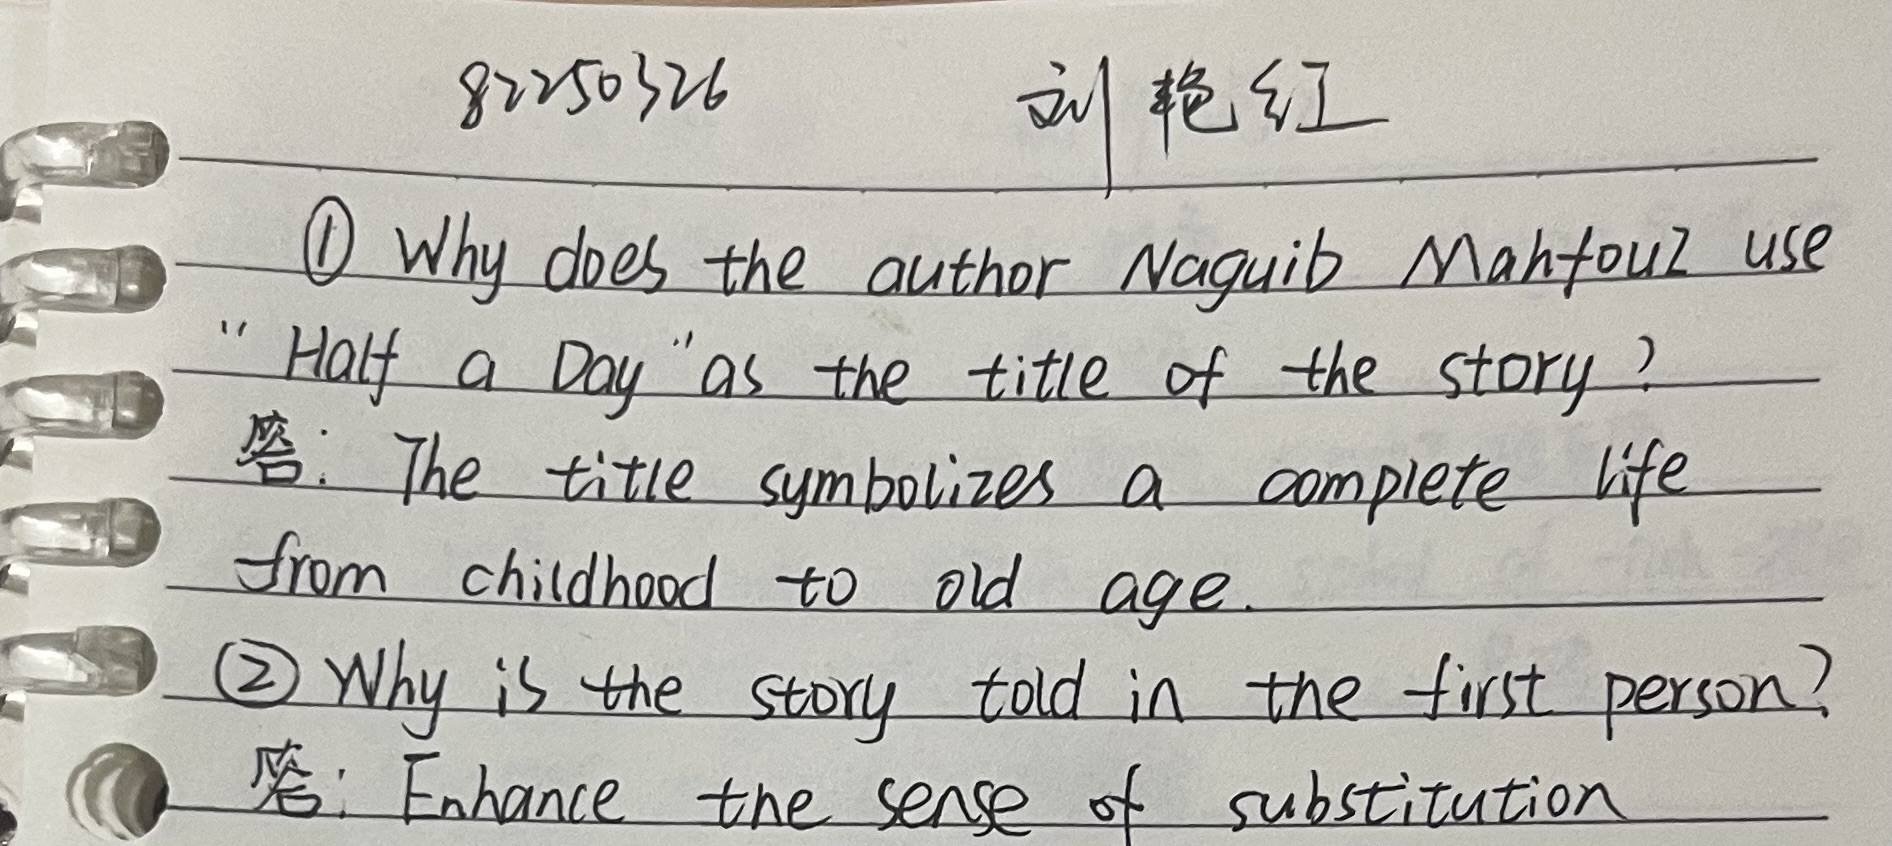 82250326 刘艳红
① Why does the author Naguib Mahfouz use
"Half a Day" as the title of the story?
答: The title symbolizes a complete life
from childhood to old age.
② Why is the story told in the first person?
答: Enhance the sense of substitution